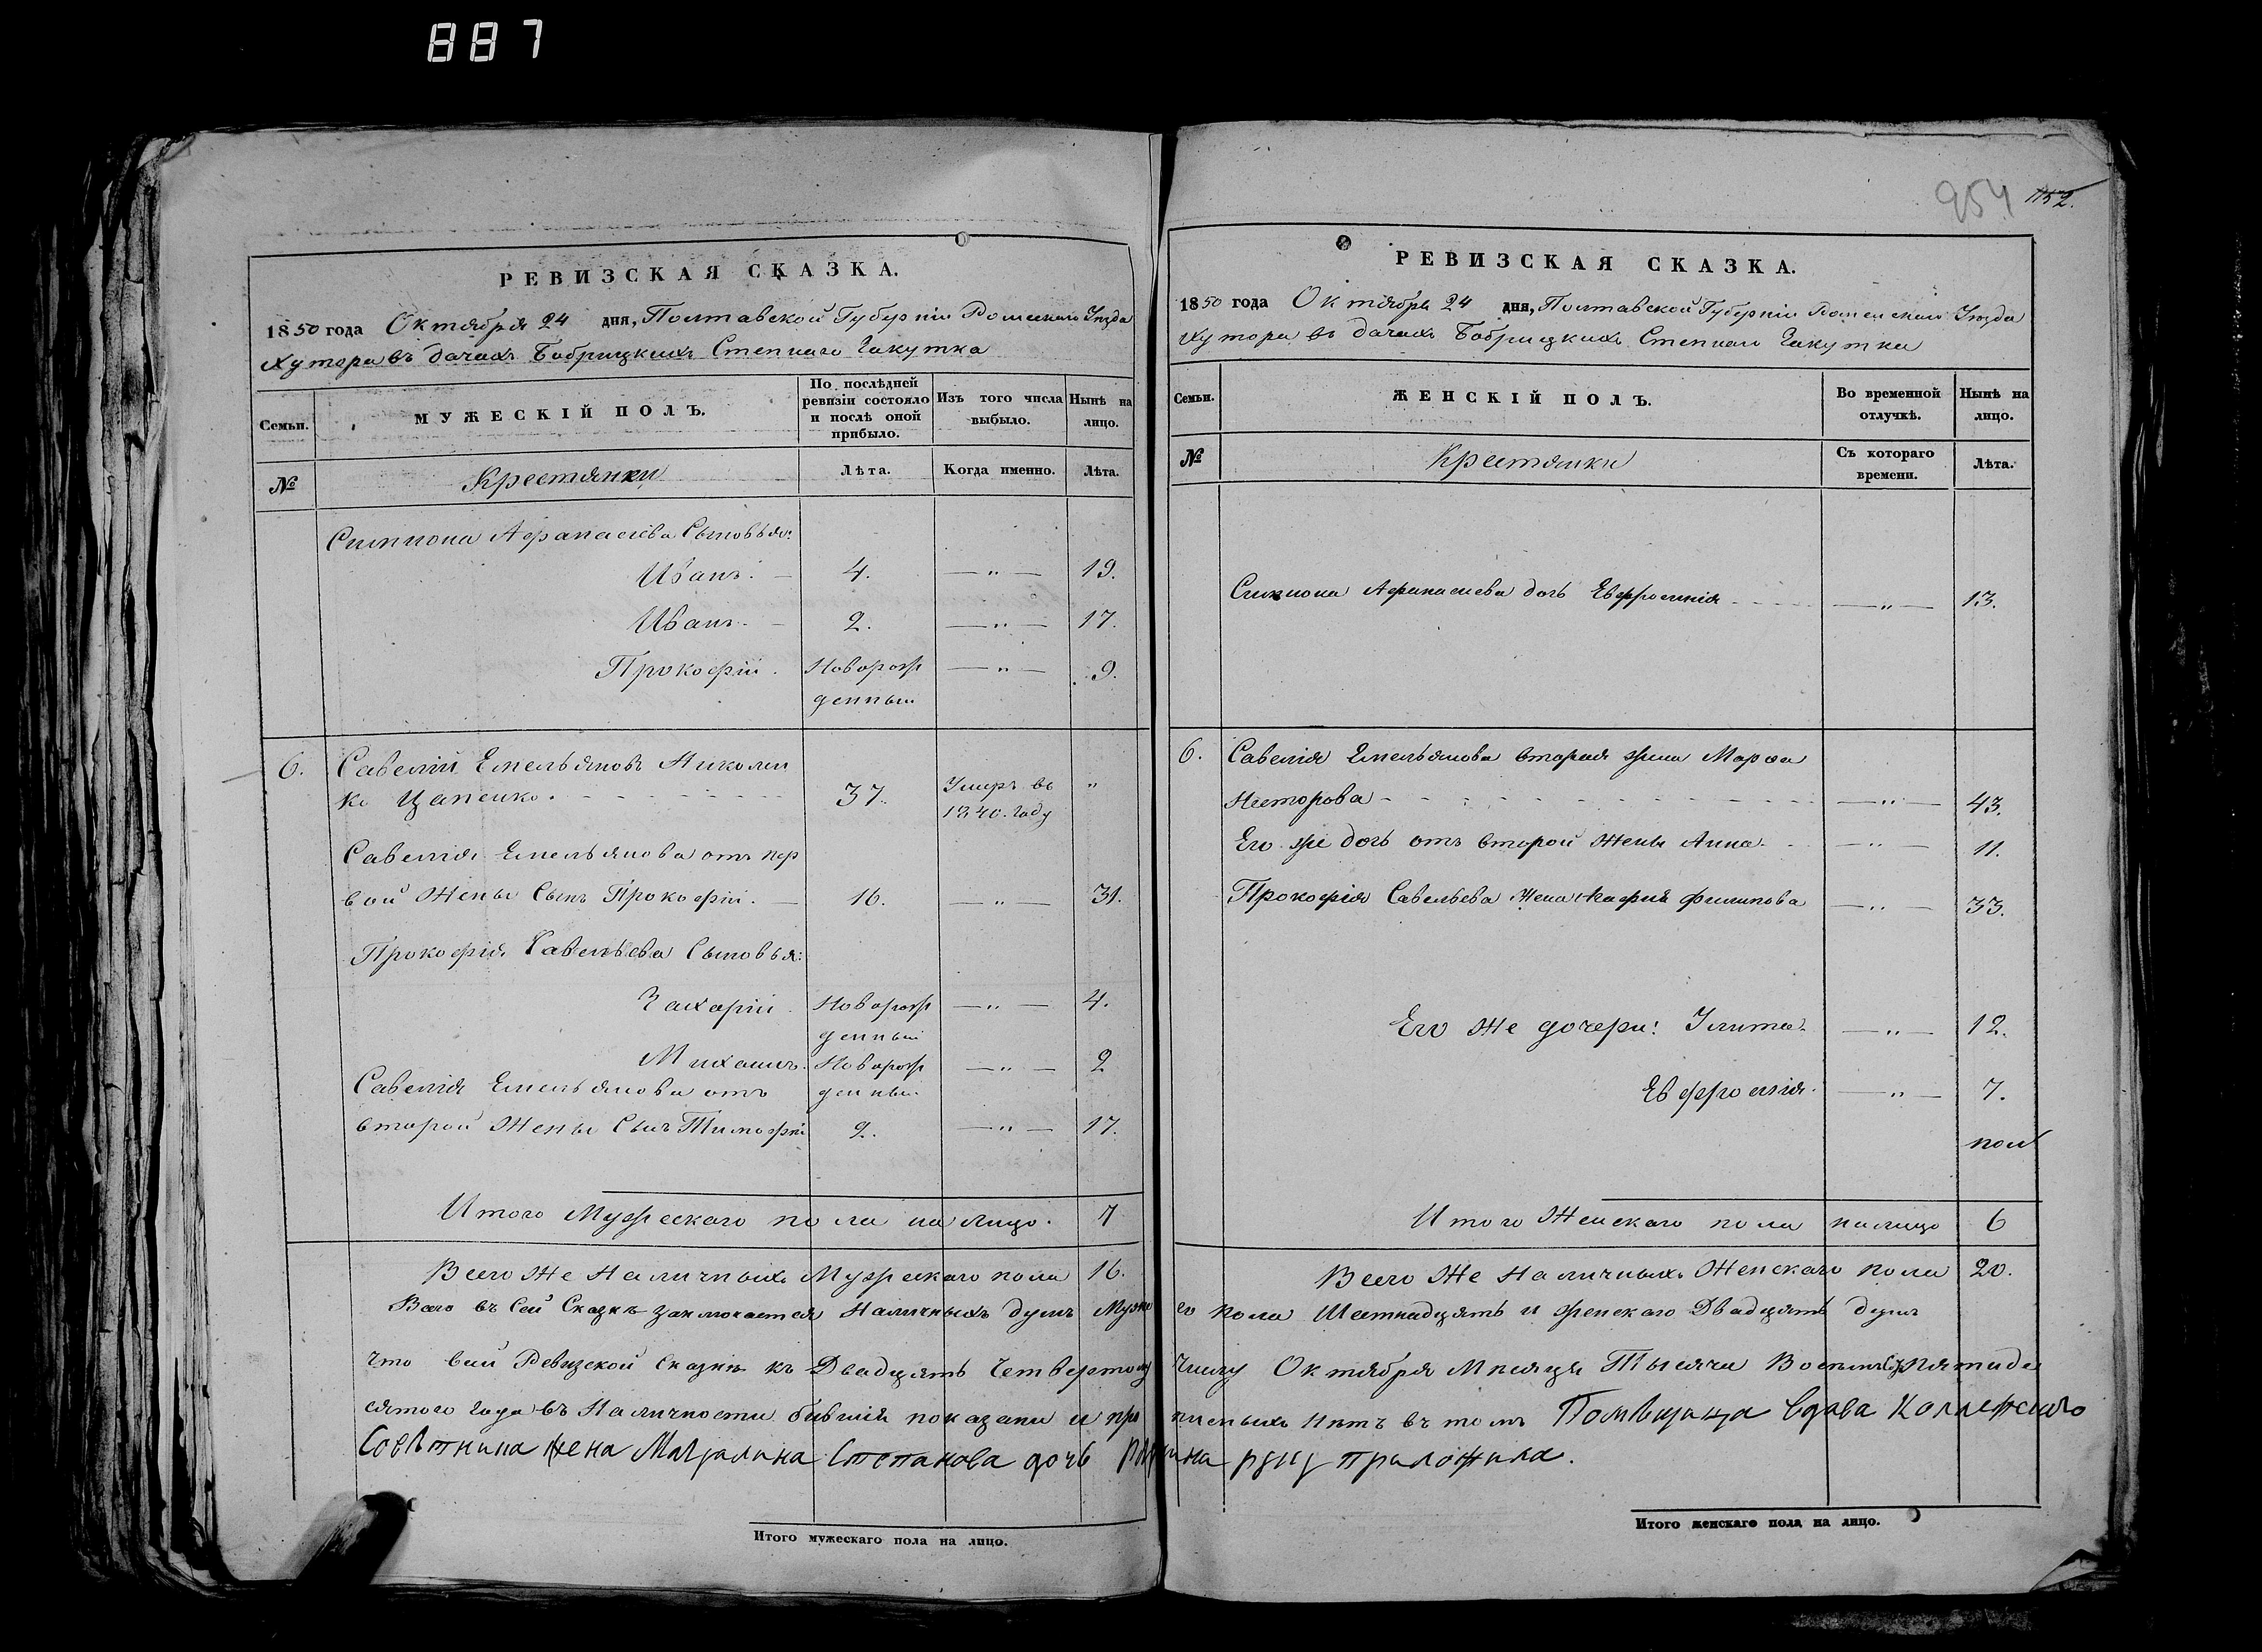 887
954 1152.
РЕВИЗСКАЯ СКАЗКА.
1850 года Октября 24 дня, Полтавской Губерніи Роменскаго Уезда
Хутора въ дачахъ Бобрицкихъ Степнаго
Семьи. МУЖЕСКІЙ ПОЛЪ. По послѣдней ревизіи состояло и послѣ оной прибыло. Изъ того числа выбыло. Нынѣ на лицо.
№ Крестянки Лѣта. Когда именно. Лѣта.
Афанасіева Сыновья:
Иванъ. — 4. — " — 19.
Иванъ. — 2. — " — 17.
Прокофій. Новорож — " — 9.
денный
6. Савелій Емельяновъ Николаен
ко Цапенко. 37. Умеръ въ "
1840. Году
Савелія Емельянова отъ пер
вой Жены Сынъ Прокофій. — 16. — " — 31.
Прокофія Савельева Сыновья:
Захарій. Новорож — " — 4.
денный
Михаилъ. Новорож — " — 2
Савелія Емельянова отъ денный
второй Жены Сынъ Тимофій 2. — " — 17.
Итого Мужескаго пола на лицо. 7
Всего Же Наличныхъ Мужескаго пола 16.
Итого мужескаго пола на лицо.
РЕВИЗСКАЯ СКАЗКА.
1850 года Октября 24 дня, Полтавской Губерніи Роменскаго Уезда
Хутора въ дачахъ Бобрицкихъ Степнаго
Семьи. ЖЕНСКІЙ ПОЛЪ. Во временной отлучкѣ. Нынѣ на лицо.
№ Крестянки Съ котораго времени. Лѣта.
Афанасиева дочь Евфросинія — " — 13.
6. Савелія Емельянова вторая жена Марфа
Несторова — " — 43.
Его же дочь отъ второй Жены Анна — " — 11.
Прокофія Савельева Жена Филипова — " — 33.
Его Же дочери: Улита. — " — 12.
Евфросинія. — " — 7.
пол
Итого Женскаго пола налицо 6
Всего Же Наличныхъ Женскаго пола 20.
Всего въ Сей Сказкѣ заключается Наличныхъ душъ Мужес го пола Шестнадцять и женскаго Двадцять душъ
Что въ сей Ревизской Сказкѣ къ Двадцять Четвертому Числу Октября Месяця Тысяча Восемсотъ Пятиде
сятого Года въ Наличности бывшія показаны и про писныхъ Нѣтъ въ томъ Помѣщица вдова Коллежскаго
Совѣтника жена Магдалина Степанова дочь руку приложила.
Итого женскаго пола на лицо.